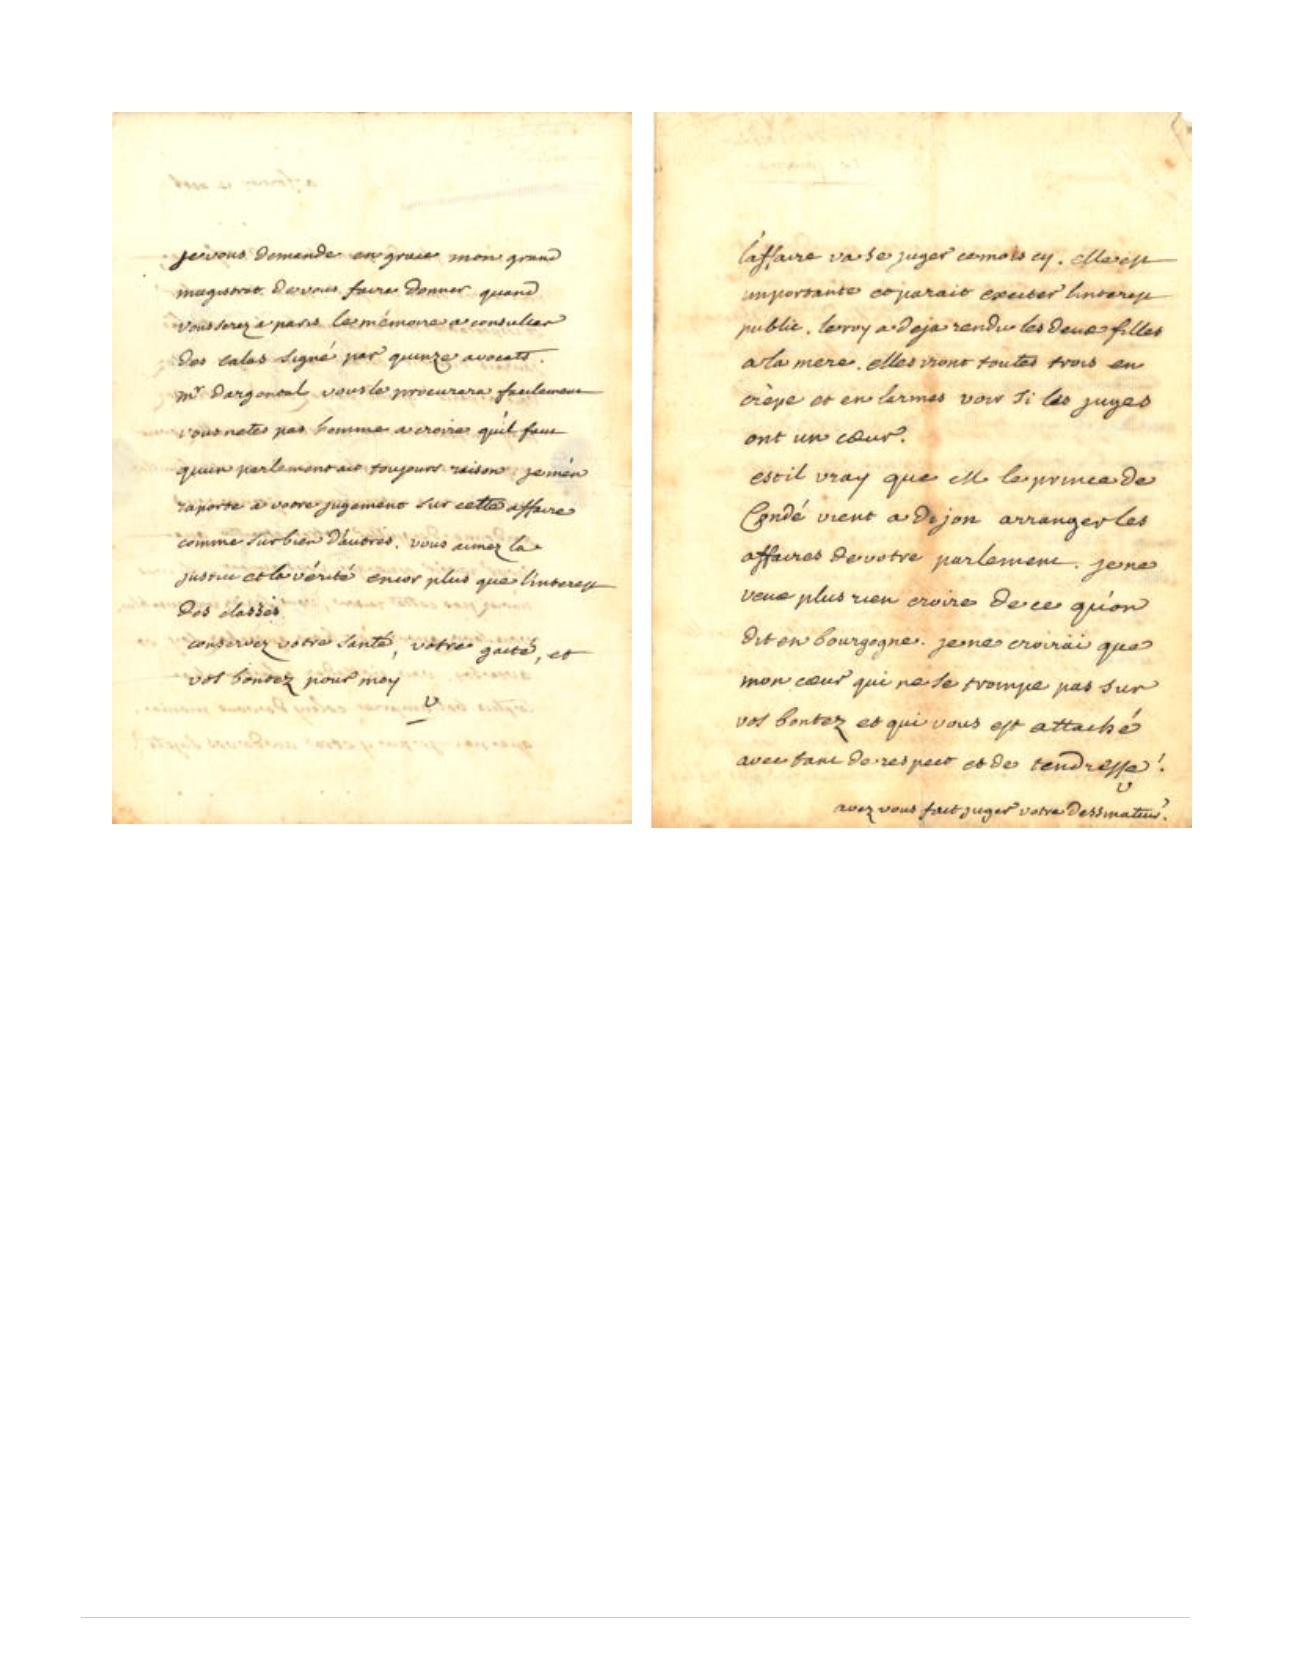 je vous demande en grace mon grand
magistrat de vous faire donner quand
vous serez a paris le mémoire a consulter
des calas signé par quinze avocats.
mr dargental vous le procurera facilement
vous netes pas homme a croire qu'il faut
quun parlement ait toujours raison. je m'en
raporte a votre jugement sur cette affaire
comme sur bien d'autres. vous aimez la
justice et la vérité encor plus que l'interest
des classes.
conservez votre santé, votre gaité, et
vos bontez pour moy
V
l'affaire va se juger ce mois cy. elle est
importante et parait exciter linterest
public. le roy a deja rendu les deux filles
a la mere. elles iront toutes trois en
crèpe et en larmes voir si les juges
ont un cœur.
est il vray que M le prince de
Condé vient a dijon arranger les
affaires de votre parlement. je ne
veux plus rien croire de ce qu'on
dit en bourgogne. je ne croirai que
mon cœur qui ne se trompe pas sur
vos bontez et qui vous est attaché
avec tant de respect et de tendresse!
V
avez vous fait juger votre dessinateur?